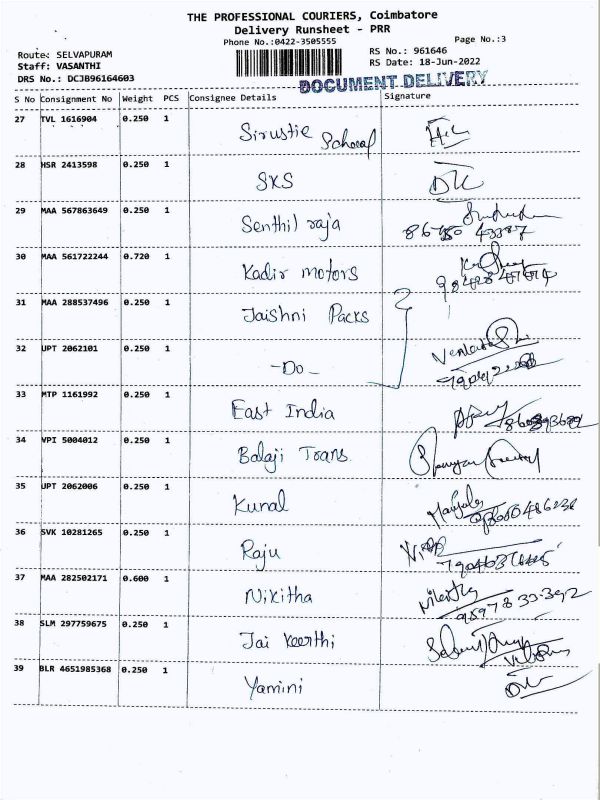 THE PROFESSIONAL COURIERS, Coimbatore
Delivery Runsheet - PRR
Phone No.:0422-3505555
Page No.:3
Route: SELVAPURAM
RS No.: 961646
Staff: VASANTHI
RS Date: 18-Jun-2022
DRS No.: DCJB96164603
DOCUMENT DELIVERY
S No Consignment No Weight PCS Consignee Details Signature
27 TVL 1616904 0.250 1
28 HSR 2413598 0.250 1 SKS
29 MAA 567863649 0.250 1 Senthil raja
30 MAA 561722244 0.720 1 Kadir motors
31 MAA 288537496 0.250 1 Jaishni Packs
32 UPT 2062101 0.250 1 -Do-
33 MTP 1161992 0.250 1 East India
34 VPI 5004012 0.250 1 Balaji Trans
35 UPT 2062006 0.250 1 Kunal
36 SVK 10281265 0.250 1 Raju
37 MAA 282502171 0.600 1 Nikitha
38 SLM 297759675 0.250 1 Jai Keerthi
39 BLR 4651985368 0.250 1 Yamini